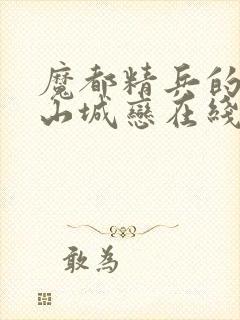 魔都精兵的
山城戀在綫
敢為